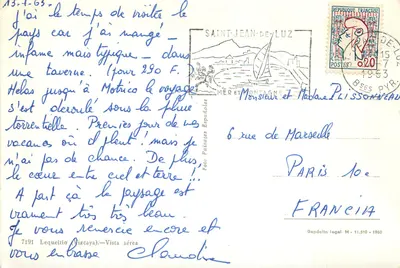 13-7-63.
j'ai le temps de visiter le
pays car j'ai mangé -
infame mais typique - dans
une taverne. (pour 290 F.
Helas jusqu'à Motrico le voyage
s'est déroulé sous la pluie
torrentielle. Premier jour de nos
vacances où il pleut! mais je
n'ai pas de chance. De plus,
le cœur entre ciel et terre!!!
A part ça le paysage est
vraiment très très beau.
Je vous remercie encore et
vous embrasse Claudine
7191 Lequeitio (Vizcaya).-Vista aérea
SAINT-JEAN-DE-LUZ
MER ET MONTAGNE
1963
Bses PYR.
REPUBLIQUE FRANÇAISE
POSTES
0,20
Foto Paisajes Españoles
Monsieur et Madame PLISSONNEAU
6 rue de Marseille
PARIS 10e
FRANCIA
Depósito legal